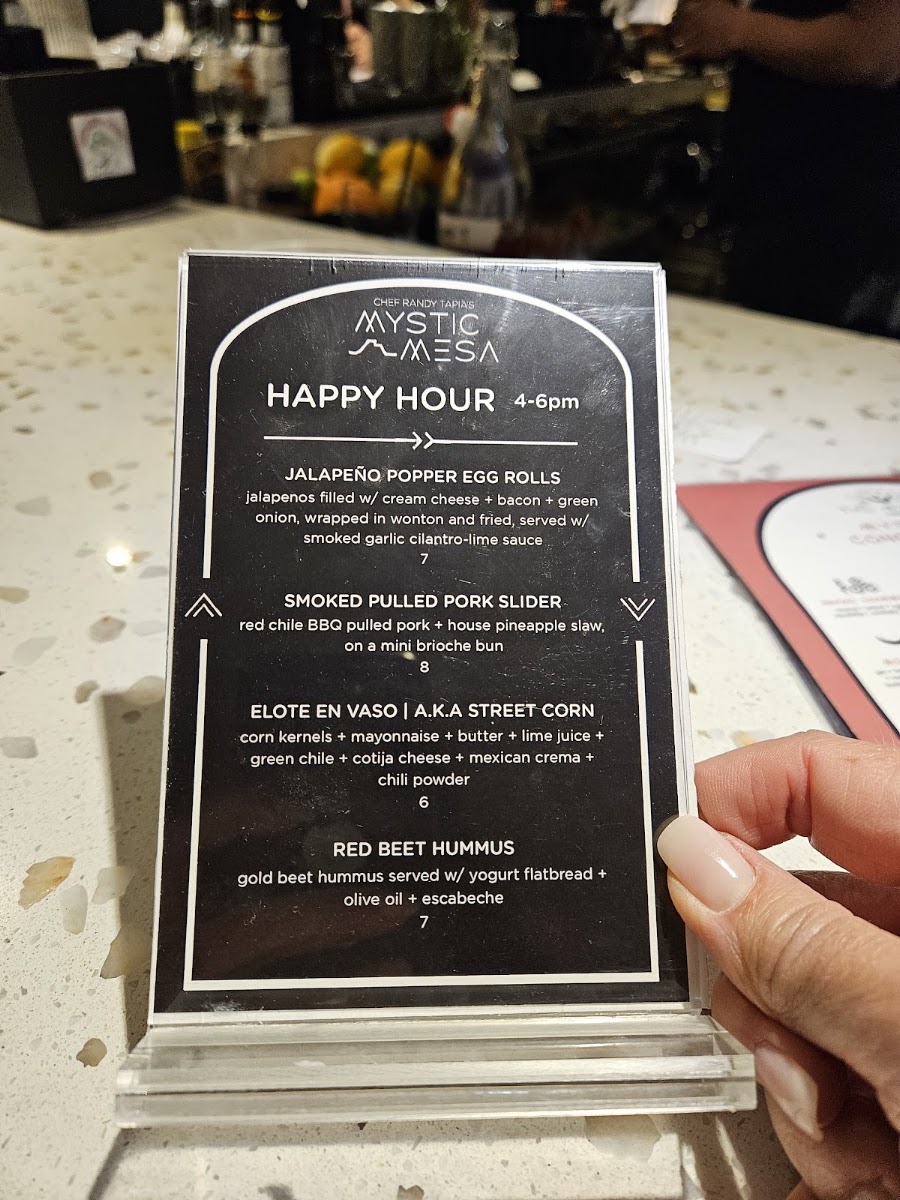 CHEF RANDY TAPIA'S
MYSTIC
MESA
HAPPY HOUR 4-6pm
JALAPEÑO POPPER EGG ROLLS
jalapenos filled w/ cream cheese + bacon + green
onion, wrapped in wonton and fried, served w/
smoked garlic cilantro-lime sauce
7
SMOKED PULLED PORK SLIDER
red chile BBQ pulled pork + house pineapple slaw,
on a mini brioche bun
8
ELOTE EN VASO | A.K.A STREET CORN
corn kernels + mayonnaise + butter + lime juice +
green chile + cotija cheese + mexican crema +
chili powder
6
RED BEET HUMMUS
gold beet hummus served w/ yogurt flatbread +
olive oil + escabeche
7